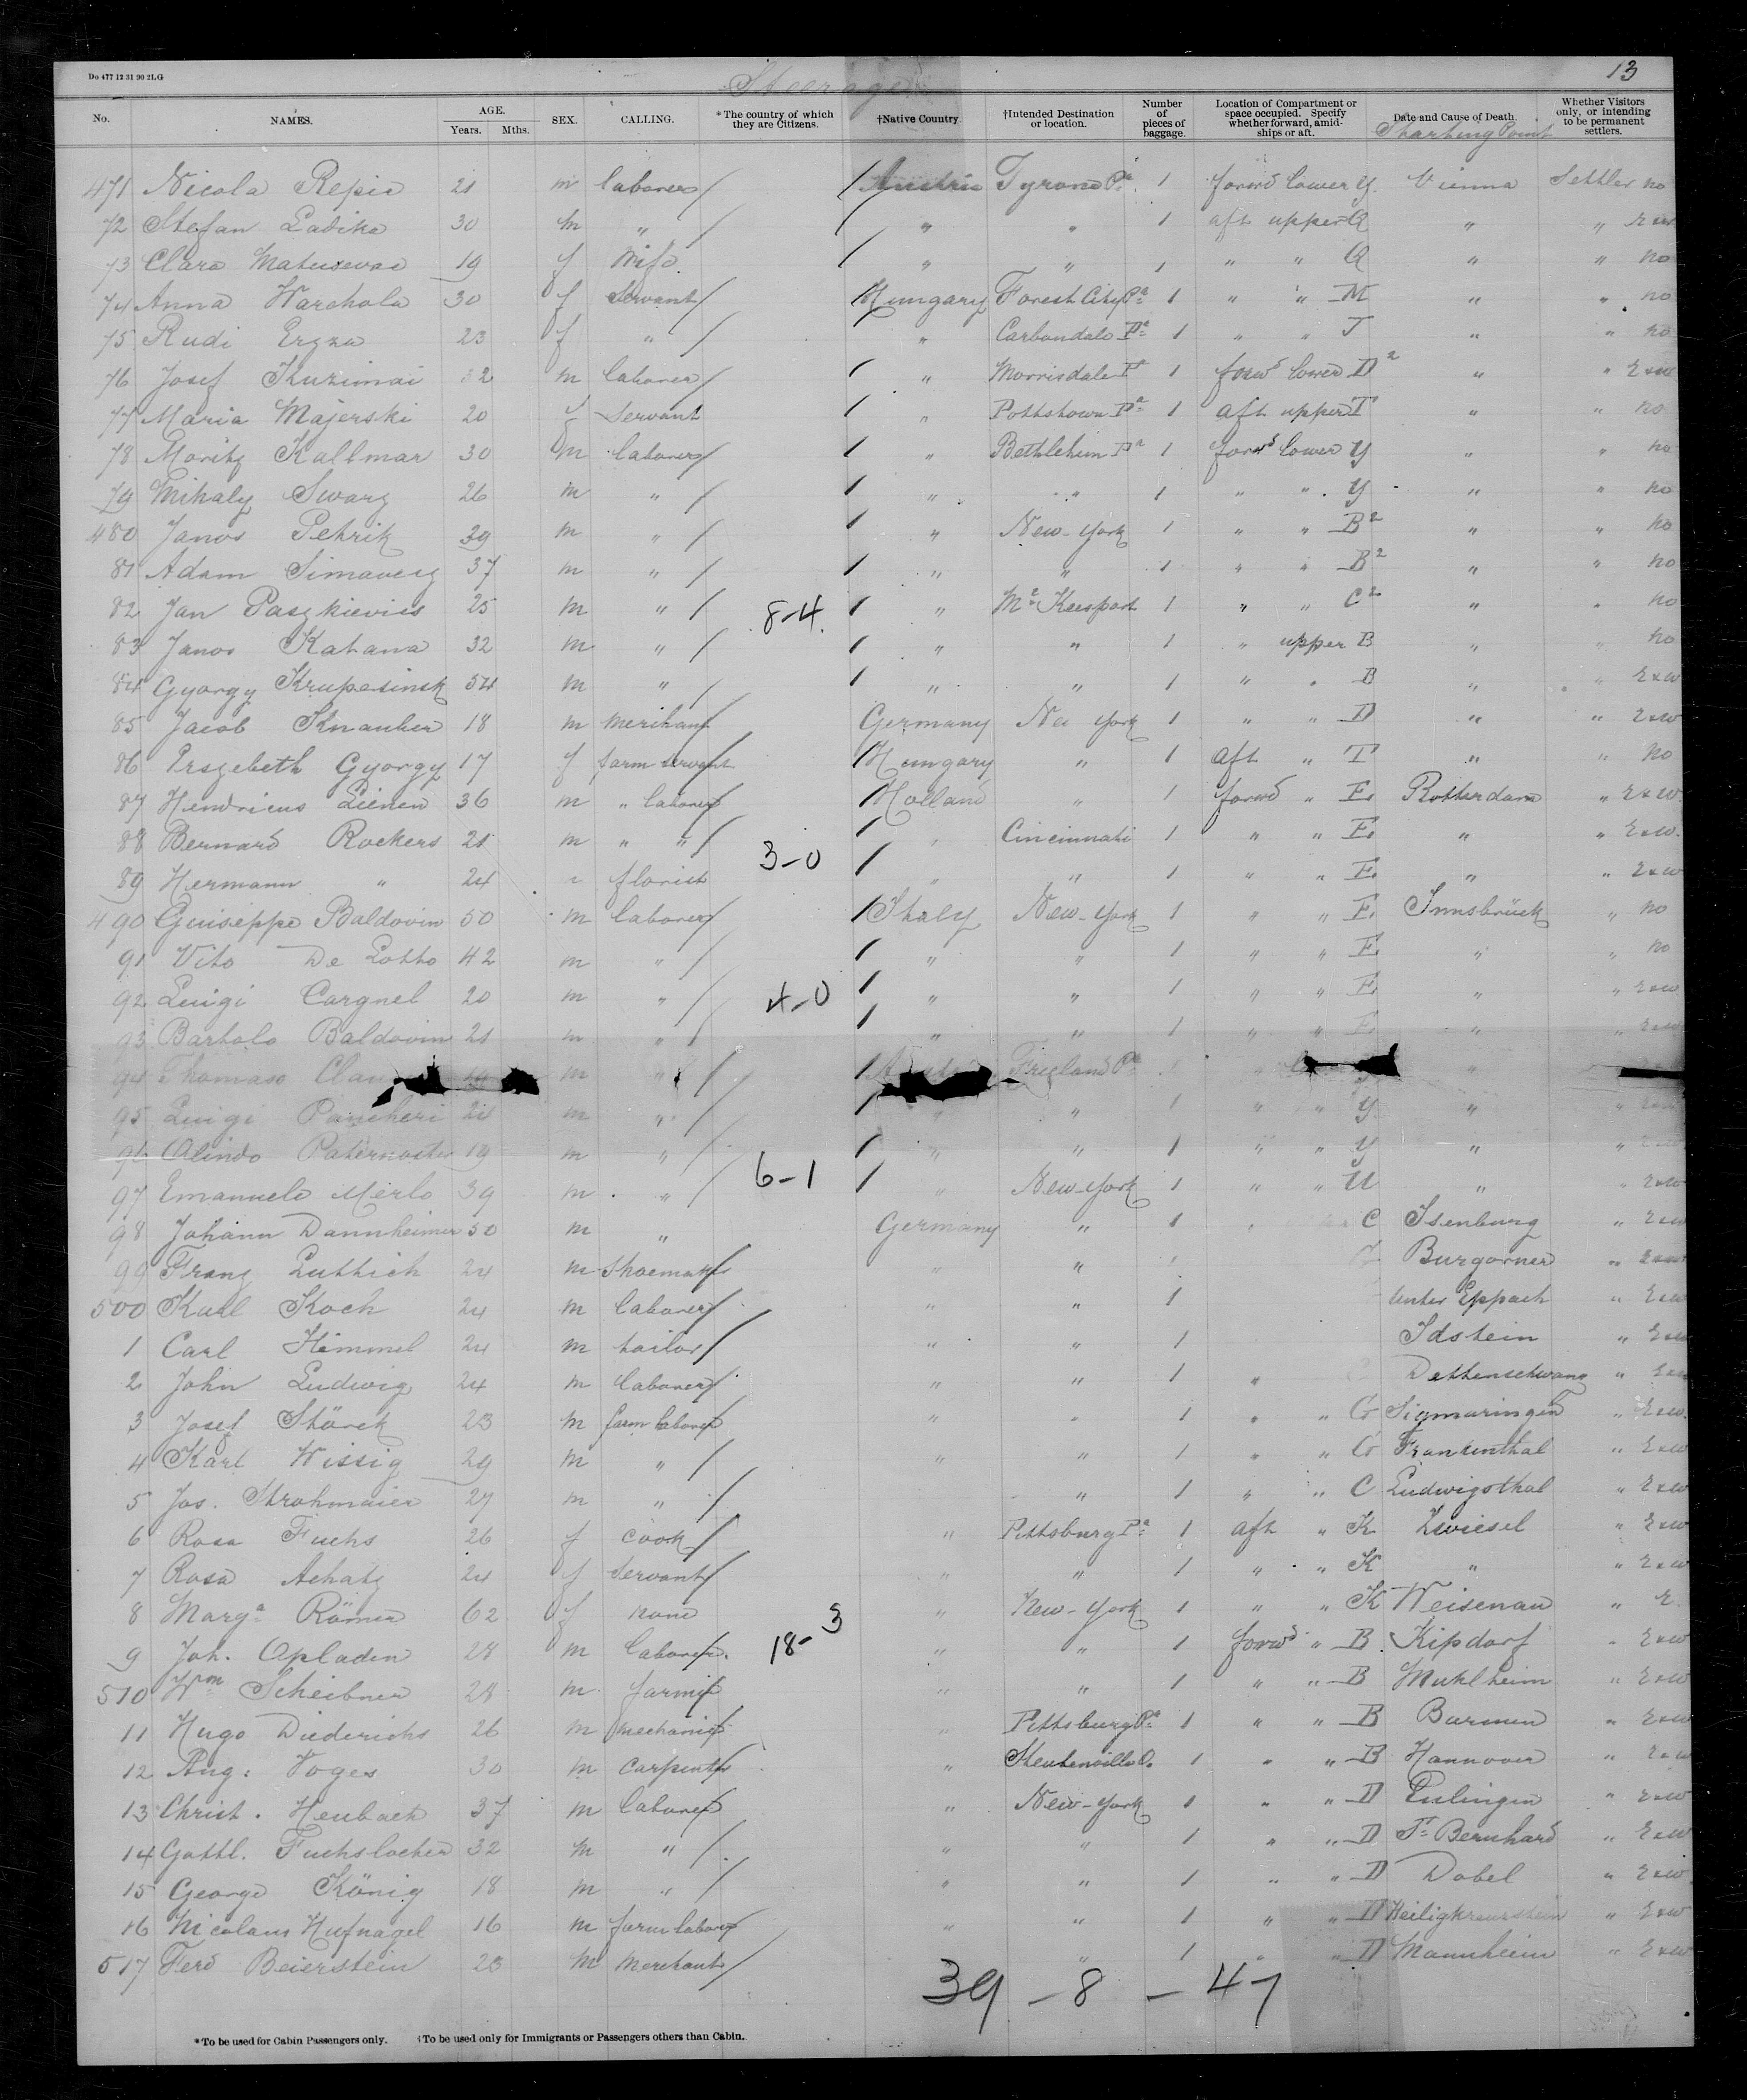 Do 477 12 31 90 2LG
Steerage
13
No. NAMES. AGE. Years. Mths. SEX. CALLING. *The country of which they are Citizens. †Native Country. †Intended Destination or location. Number of pieces of baggage. Location of Compartment or space occupied. Specify whether forward, amidships or aft. Date and Cause of Death. Whether Visitors only, or intending to be permanent settlers.
Starting Point
471 Nicola Repie 21 m laborer / / Austria Tyrone Pa. 1 forwd lower Y. Vienna Settler no
72 Stefan Ladika 30 m " / / " " 1 aft upper Q " " r&w
73 Clara 19 f Wife / " " 1 " " Q " " no
74 Anna Warchola 30 f Servant / / Hungary Forest City Pa 1 " " M " " no
75 Rudi 23 f " / " Carbondale Pa 1 " " T " " no
76 Josef Kuzimai 32 m laborer / / " Morrisdale P 1 forwd lower D2 " " r&w
77 Maria Majerski 20 f Servant / " Pottstown Pa 1 aft upper T " " no
78 Moritz Kallmar 30 m laborer / / " Bethlehem Pa 1 forwd lower Y " " no
79 Mihaly Swarz 26 m " / / " " 1 " " Y " " no
480 Janos Petrik 39 m " / / " New-York 1 " " B2 " " no
81 Adam 37 m " / / " " 1 " " B2 " " no
82 Jan 25 m " / 8-4 / " Mc Keesport 1 " " C2 " " no
83 Janos Katana 32 m " / / " " 1 " upper B " " no
84 Gyorgy Krupasinsk 54 m " / / " " 1 " " B " " r&w
85 Jacob Knauber 18 m merchant Germany New York 1 " " D " " r&w
86 Erszebeth Gyorgy 17 f farm servant / Hungary " 1 aft " T " " no
87 Hendricus Lienen 36 m " laborer / / Holland " 1 forwd " E Rotterdam " r&w
88 Bernard Rockers 21 m " " / / " Cincinnati 1 " " E " " r&w
89 Hermann " 24 " florist 3-0 / " " 1 " " E " " r&w
490 Guiseppe Baldovin 50 m laborer / / Italy New-York 1 " " E Innsbrück " no
91 Vito De Lotto 42 m " / / " " 1 " " E " " no
92 Luigi Cargnel 20 m " / 4-0 / " " 1 " " E " " r&w
93 Bartolo Baldovin 21 m " / / " " 1 " " E " " r&w
94 Thomaso m " / / Freeland Pa "
95 Luigi Pancheri 24 m " / / " " 1 " " Y " "
96 Olindo Paternoster 19 m " / / " " 1 " " Y " "
97 Emanuele Merlo 39 m " / 6-1 / " New-York 1 " " U " " r&w
98 Johann Dannheimer 50 m " Germany " 1 " C Isenburg " r&w
99 Franz Luttich 24 m Shoemaker " " Burgörner " r&w
500 Karl Koch 24 m laborer / " " 1 Unter Eppach " r&w
1 Carl Himmel 24 m tailor / " " 1 Idstein " r&w
2 John Ludwig 24 m laborer / " " 1 " C Dettenschwang " r&w
3 Josef Störck 23 m farm laborer " " 1 " " G Sigmaringen " r&w
4 Karl Wissig 29 m " / " " 1 " " G Frankenthal " r&w
5 Jos. Strohmaier 27 m " / " 1 " " C Ludwigsthal " r&w
6 Rosa Fuchs 26 f Cook / " Pittsburg Pa 1 aft " K Zwiesel " r&w
7 Rosa Achatz 24 f Servant / " " 1 " " K " " r&w
8 Marga Römer 62 f none " New-York 1 " " K Weisenau " r
9 Joh. Opladen 28 m laborer 18-3 " " 1 forwd " B Kipdorf " r&w
510 Wm Scheibner 28 m farmer " " 1 " " B Muhlheim " r&w
11 Hugo Diederichs 26 m mechanic " Pittsburg Pa 1 " " B Barmen " r&w
12 Aug. Voges 30 m Carpenter " Steubenville O. 1 " " B Hannover " r&w
13 Christ. Heubach 37 m laborer " New-York 1 " " D " r&w
14 Gottl. Fuchslocher 32 m " / " " 1 " " D St Bernhard " r&w
15 George König 18 m " / " " 1 " " D Dobel " r&w
16 Nicolaus Hufnagel 16 m farm laborer " " 1 " " D " r&w
517 Ferd Beierstein 23 m Merchant / " 1 " " D Mannheim " r&w
39 - 8 - 47
*To be used for Cabin Passengers only. †To be used only for Immigrants or Passengers others than Cabin.